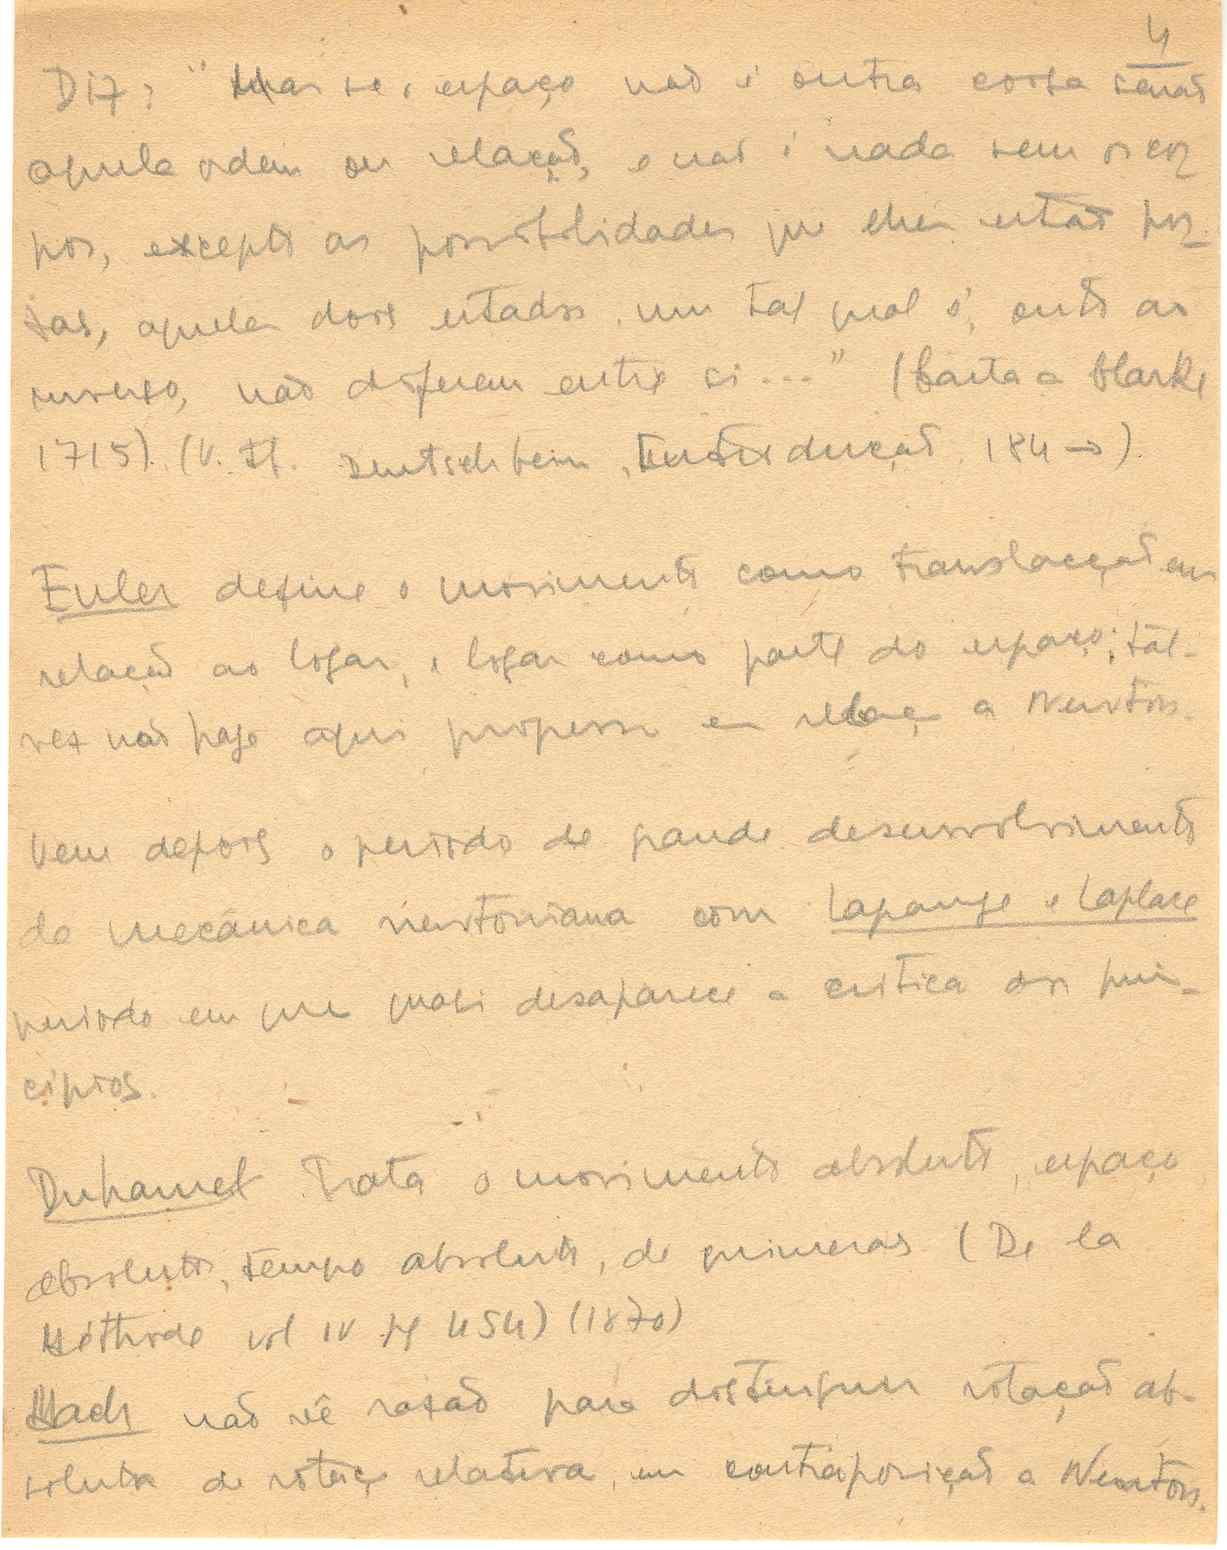 4
Diz: "Mas se o espaço não é outra coisa senão
aquela ordem ou relação, e não é nada sem os cor
pos, excepto as possibilidades que eles estão pos-
tas, aqueles dois estados, um tal qual é, outro ao
inverso, não diferem entre si..." (Carta a Clarke
1715). (V. St. Deutschbein, Introdução 184→).
Euler define o movimento como translacção em
relação ao logar, o logar como parte do espaço; tal-
vez não haja aqui progresso em relaç a Newton.
Vem depois o periodo de grande desenvolvimento
da mecânica newtoniana com Lagrange e Laplace
periodo em que quasi desaparece a critica dos prin-
cipios.
Duhamel trata o movimento absoluto, espaço
absoluto, tempo absoluto, de quimeras (De la
Méthode vol IV pg 454) (1870)
Mach não vê razão para distinguir rotação ab-
soluta de rotaç relativa, em contraposição a Newton.